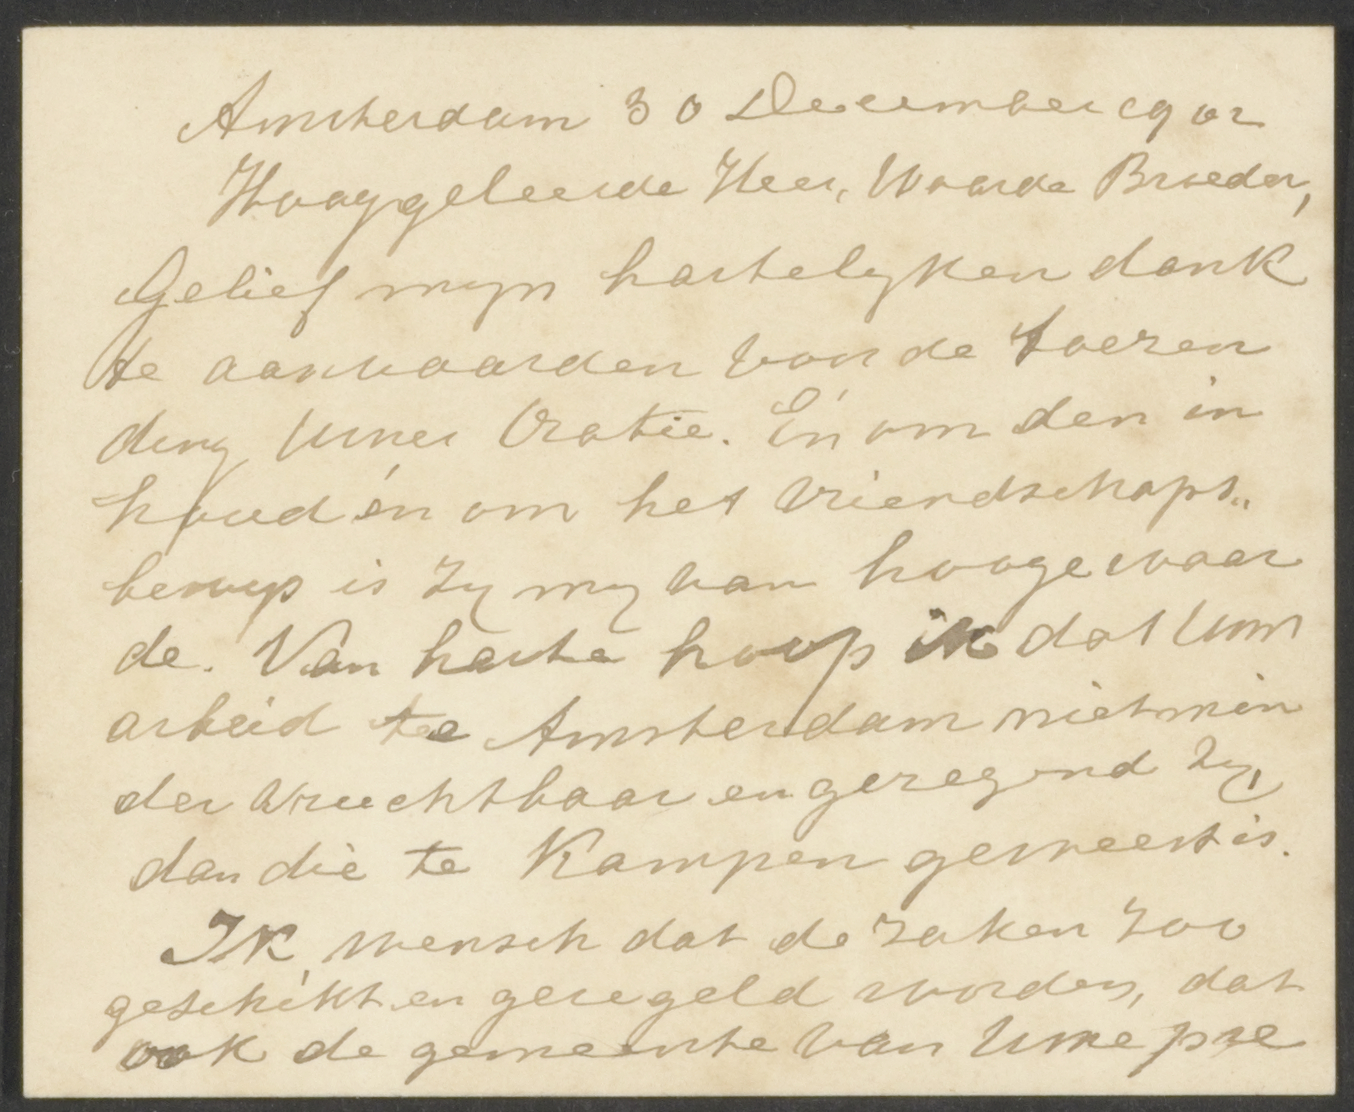 Amsterdam 30 December 1902
Hooggeleerde Heer, Waarde Broeder,
Gelief mijn hartelijken dank
te aanvaarden voor de toezen
ding Uwer Oratie. Én om den in
houd én om het vriendschaps„
bewijs is zij mij van hooge waar
de. Van harte hoop ik dat Uw
arbeid te Amsterdam niet min
der vruchtbaar en gezegend zij,
dan die te Kampen geweest is.
Ik wensch dat de zaken zoo
geschikt en geregeld worden, dat
ook de gemeente van Uwe pre